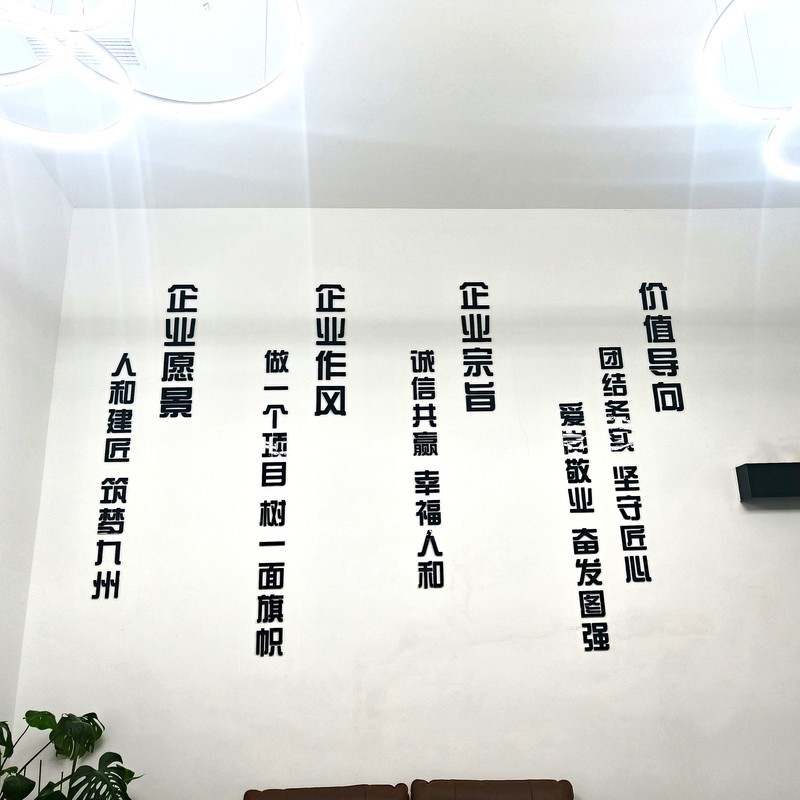 价值导向
团结务实 坚守匠心
爱岗敬业 奋发图强
企业宗旨
诚信共赢 幸福人和
企业作风
做一个项目 树一面旗帜
企业愿景
人和建匠 筑梦九州